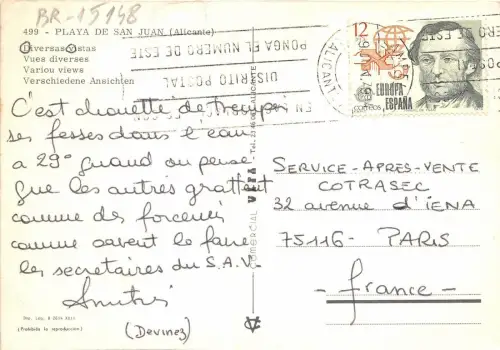 BR-15148
499 - PLAYA DE SAN JUAN (Alicante)
Diversas vistas
Vues diverses
Variou views
Verschiedene Ansichten
PONGA EL NUMERO DE ESTE
DISTRITO POSTAL
EN
ALICANTE
12
EUROPA
ESPAÑA
CORREOS
C'est chouette de tremper
ses fesses dans l'eau
a 29° quand on pense
que les autres grattent
comme des forcenés
comme savent le faire
les secretaires du S.A.V.
(Devinez)
COMERCIAL VIPA
SERVICE-APRES-VENTE
COTRASEC
32 avenue d'IENA
75116 - PARIS
- france -
Dep. Leg. B
(Prohibida la reproducción)